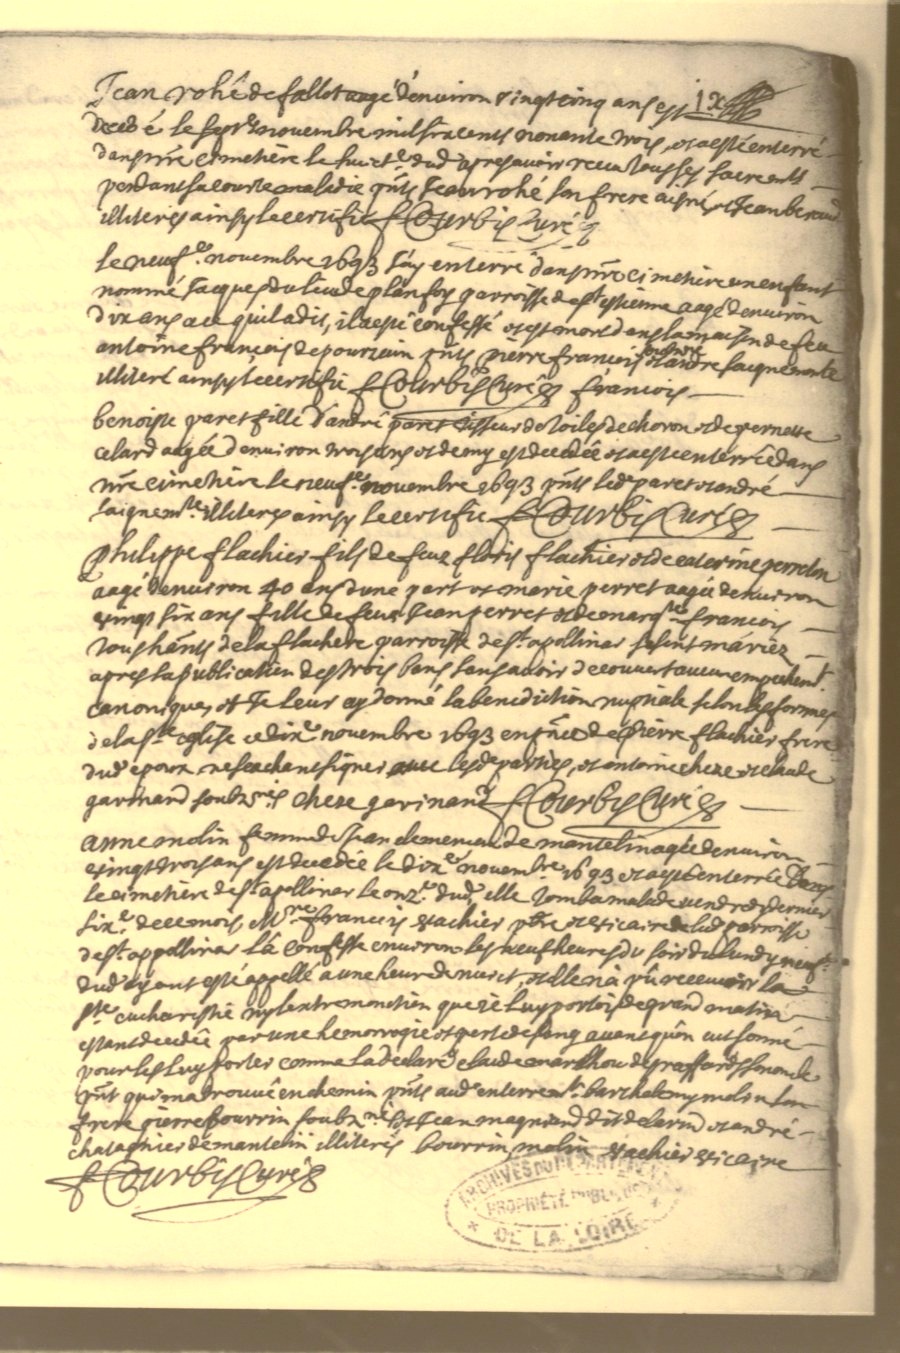 Jean rohé de fallot aagé d'environ vingt cinq ans est
decedé le sept.e novembre mil six cents nonante trois, et a esté enterré
dans nre cimetière le huict.e dud. apres avoir receu tous ses sacrem.ts
pendant sa courte maladie pnts Jean rohé son frere aisné, et Jean beraud
illiterés ainsy le certifie F Courbis Curé
le neuf.e novembre 1693 J'ay enterré dans nre cimetiere un enfant
nommé Jacques du lieu de planfoy parroisse de st estienne aagé d'environ
dix ans a ce qu'il a dit, il a esté confessé et est mort dans la maison de feu
antoine françois de pourzain pnts pierre françois soubsné et andre saignemorte
illiteré ainsy le certifie F Courbis Curé françois
benoiste paret fille d'andré paret tisseur de toiles de choron et de pernette
celard aagée d'environ trois ans et demy est decedée et a esté enterrée dans
nre cimetière le neuf.e novembre 1693 pnts led. paret et andré
saignem.te illiterés ainsy le certifie F Courbis Curé
philippe flachier fils de feux floris flachier et de caterine perrelon
aagé d'environ 40 ans d'une part et marie perret aagée d'environ
vingt six ans fille de feux Jean perret et de marg.te françois
tous h.ants de la flachere parroisse de st. apollinar se sont mariez
apres la publication des trois bans sans avoir decouvert aucun empechem.t
canonique, et Je leur ay donné la benediction nuptiale selon les formes
de la s.te eglise ce dix.e novembre 1693 en pnce de pierre flachier frere
dud. epoux ne sçachant signer avec lesd. parties, et antoine cheze et claude
garinand soubz.nés cheze garinand F Courbis Curé
anne molin femme de Jean clemenceau de mantelin agée d'environ
vingt trois ans est decedée le dix.e novembre 1693 et a esté enterrée dans
le cimetière de st. apollinar le onz.e dud., elle tomba malade vendredy dernier
six.e de ce mois M.re francois vachier pbre et vicaire de lad. parroisse
de st. appollinar l'a confessée environ les neuf heures du soir du lundy neuf.e
dud. ayant esté appellé a une heure de nuict, et elle n'a pû recevoir la
ste eucharistie ny l'extremonction que je luy portois de grand matin
estant decedée par une hemorragie et perte de sang avant qu'on eut sonné
pour les luy porter comme l'a declaré claude marthou de
pnt qui m'a trouvé en chemin pnts aud. enterrem.t barthelemy molin son
frere pierre bourrin soubz.né et Jean magniend dit delarin et andré
chatagnier de mantelin illiterés bourrin molin vachier vicaire
F Courbis Curé
ARCHIVES DU DÉPARTEMENT
PROPRIÉTÉ PUBLIQUE
* DE LA LOIRE *